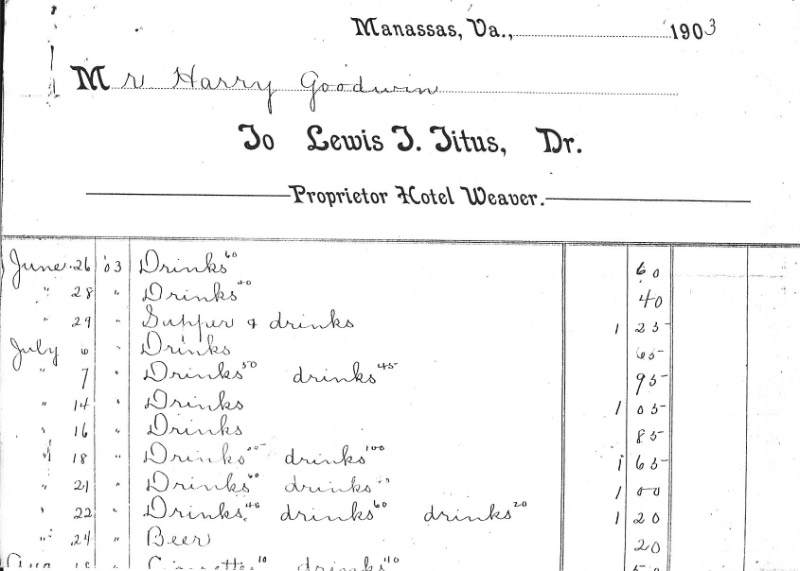 Manassas, Va., 1903
Mr Harry Goodwin
To Lewis J. Titus, Dr.
Proprietor Hotel Weaver.
June 26 '03 Drinks 60 60
" 28 " Drinks 40
" 29 " Supper & drinks 1 25
July 6 " Drinks 65
" 7 " Drinks 50 drinks 45 95
" 14 " Drinks 1 05
" 16 " Drinks 85
" 18 " Drinks drinks 100 1 65
" 21 " Drinks 60 drinks 1 00
" 22 " Drinks 40 drinks 60 drinks 20 1 20
" 24 " Beer 20
Aug 18 " Cigarettes 10 drinks 40 50